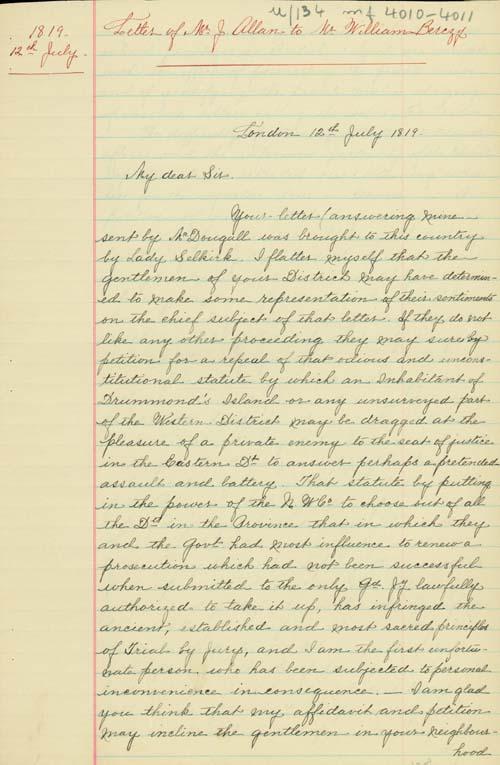 u/134 mf 4010-4011
1819.
12th July.
Letter of Mr J. Allan to Mr William Berczy
London 12th July 1819.
My dear Sir.
Your letter (answering mine
sent by McDougall was brought to this country
by Lady Selkirk. I flatter myself that the
gentlemen of your District may have determin-
ed to make some representation of their sentiments
on the chief subject of that letter. If they do not
like any other proceeding they may surely
petition for a repeal of that odious and uncons-
titutional statute by which an Inhabitant of
Drummond's Island or any unsurveyed part
of the Western District may be dragged at the
pleasure of a private enemy to the seat of justice
in the Eastern Dt to answer perhaps a pretended
assault and battery. That statute by putting
in the power of the N W Co to choose out of all
the Dts in the Province that in which they
and the Govt had most influence to renew a
prosecution which had not been successful
when submitted to the only Gd Jy lawfully
authorized to take it up, has infringed the
ancient, established and most sacred principles
of Trial by Jury, and I am the first unfortu-
nate person who has been subjected to personal
inconvenience in consequence. — I am glad
you think that my affidavit and petition
may incline the gentlemen in your neighbour-
hood